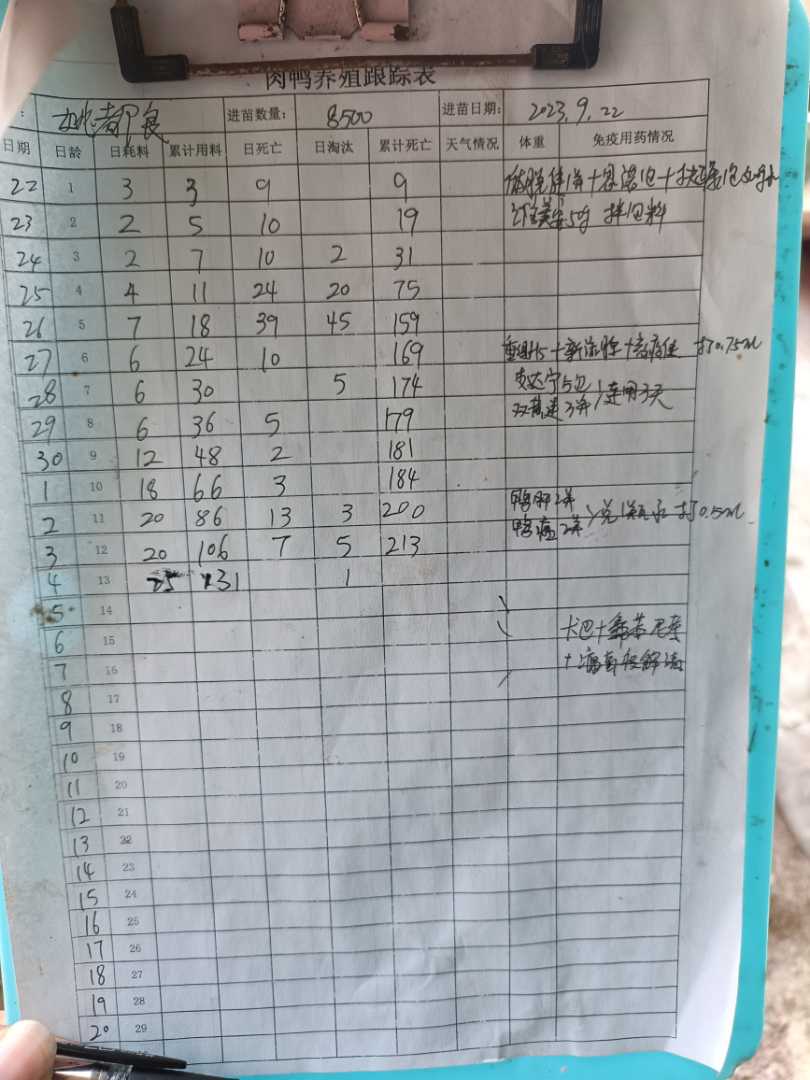 肉鸭养殖跟踪表
: 进苗数量: 8500 进苗日期: 2023.9.22
日期 日龄 日耗料 累计用料 日死亡 日淘汰 累计死亡 天气情况 体重 免疫用药情况
22 1 3 3 9 9
23 2 2 5 10 19 5g 拌1包料
24 3 2 7 10 2 31
25 4 4 11 24 20 75
26 5 7 18 39 45 159
27 6 6 24 10 169 打0.75ml
28 7 6 30 5 174 5包 连用3天
29 8 6 36 5 179 3瓶
30 9 12 48 2 181
1 10 18 66 3 184
2 11 20 86 13 3 200 鸭肝2瓶 打0.5ml
3 12 20 106 7 5 213 鸭瘟2瓶
4 13 25 131 1
5 14
6 15
7 16
8 17
9 18
10 19
11 20
12 21
13 22
14 23
15 24
16 25
17 26
18 27
19 28
20 29